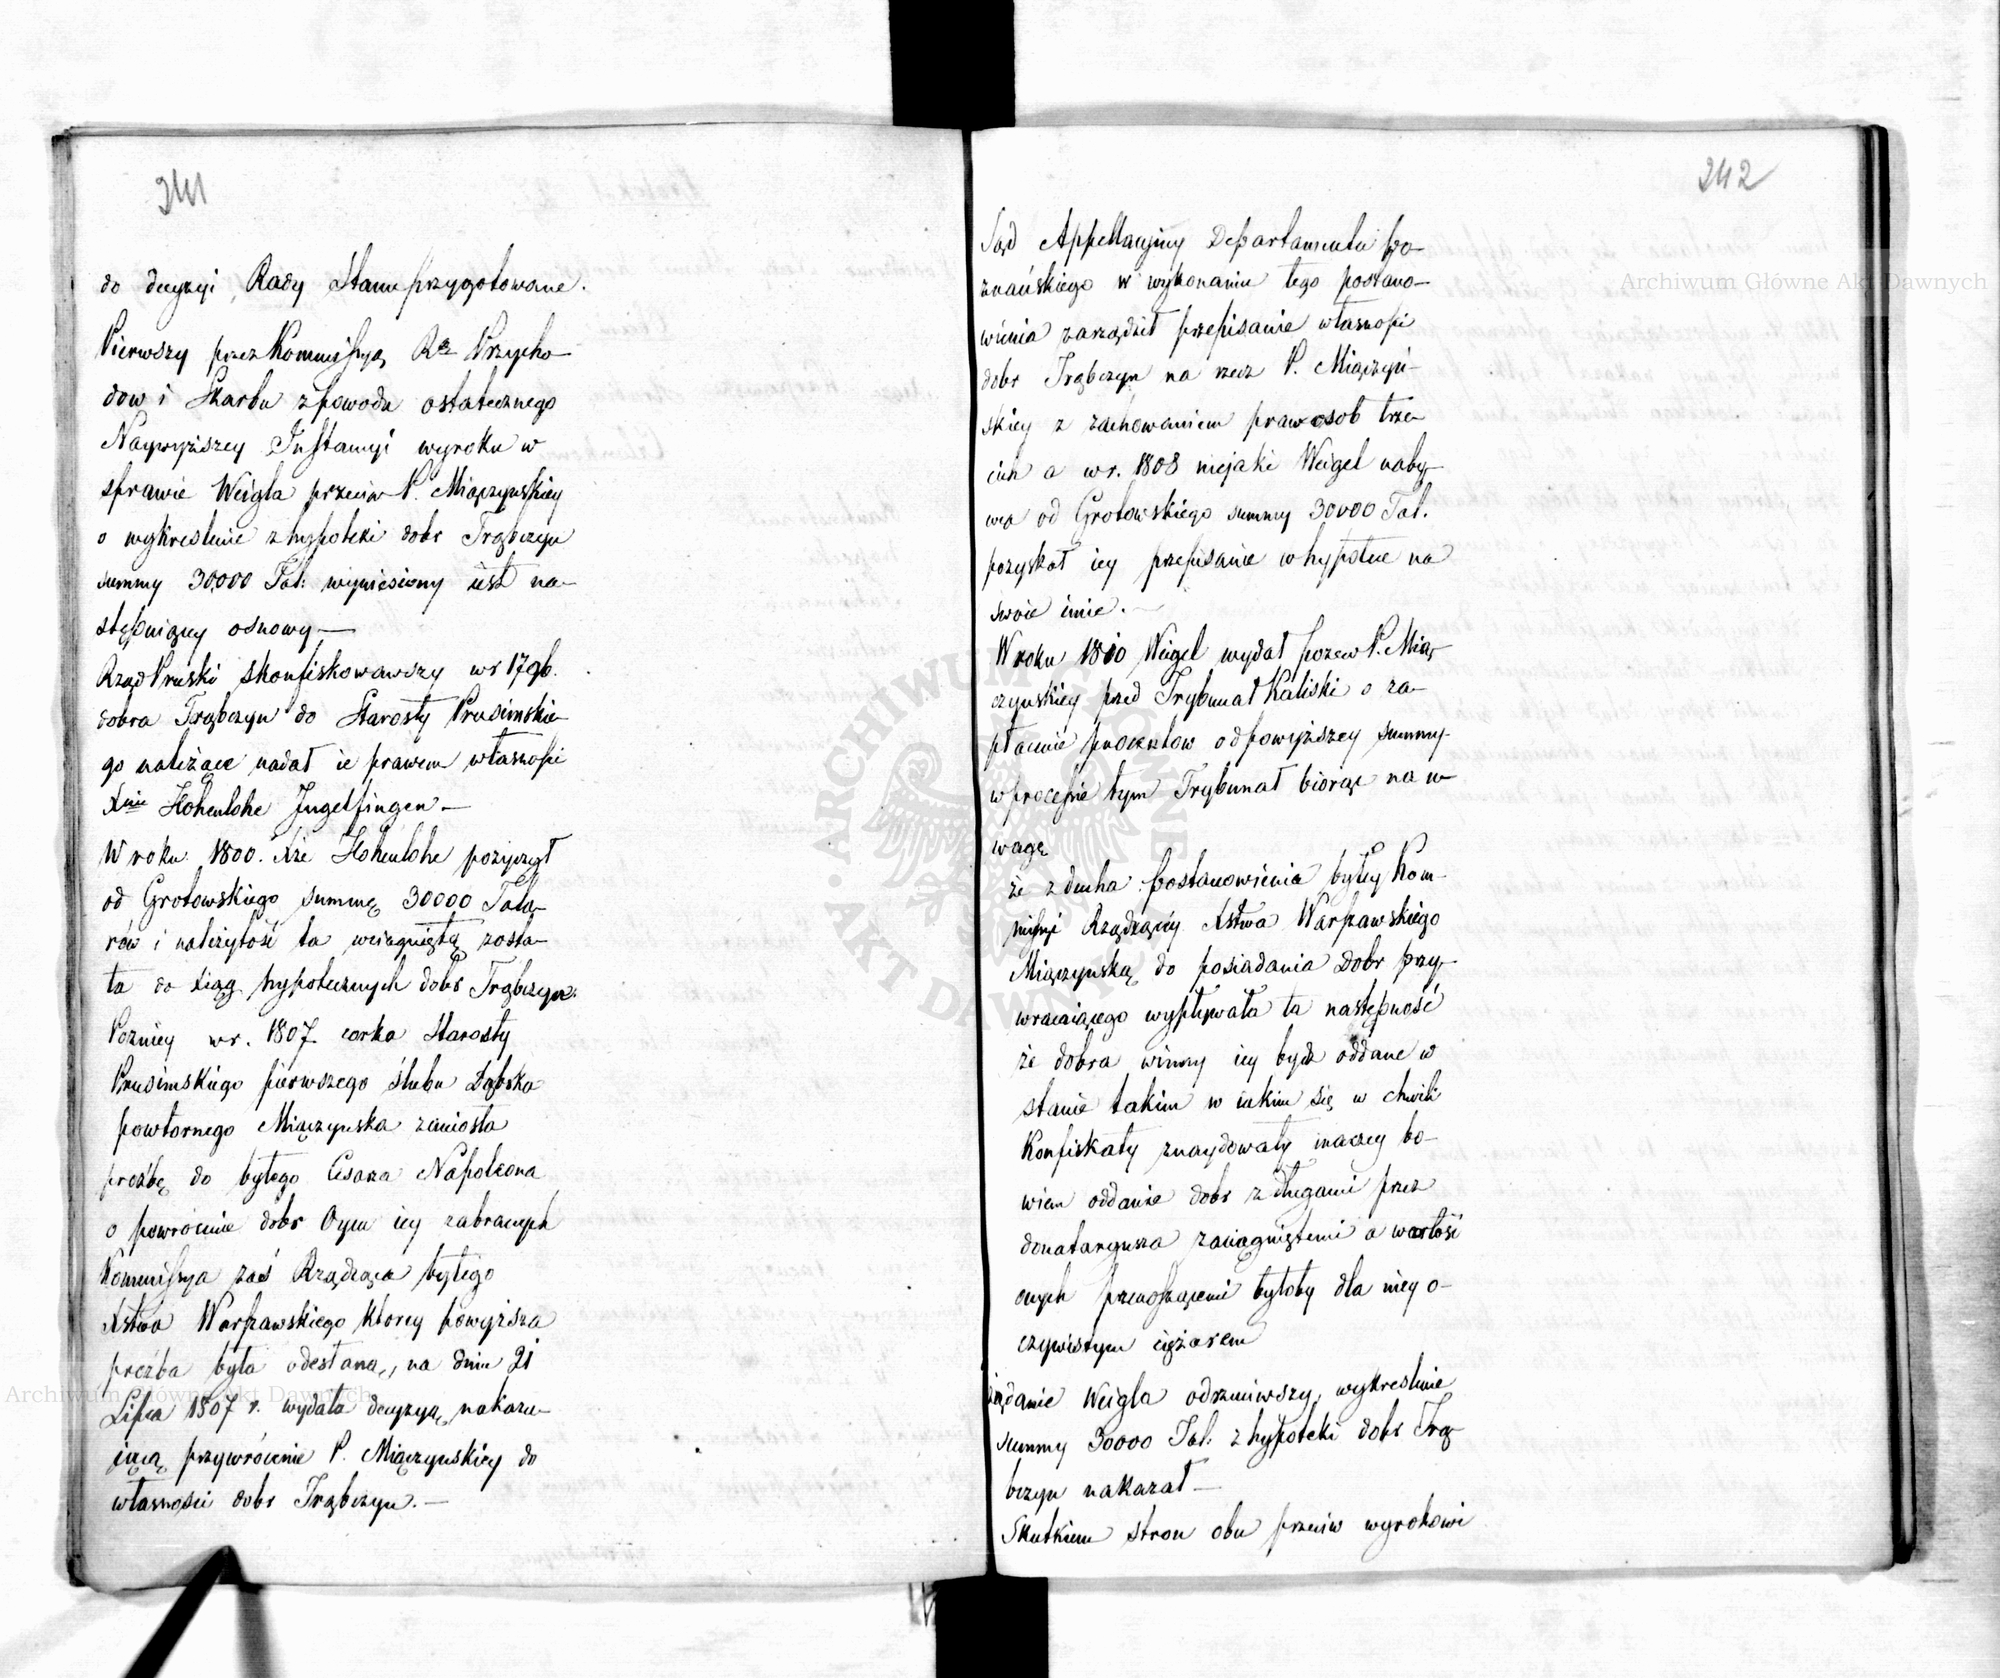 241
do decyzyi Rady Stanu przygotowane.
Pierwszy przez Kommissyą Rz. Przycho-
dow i Skarbu z powodu ostatecznego
Naywyższey Instancyi wyroku w
sprawie Weigla przeciw P. Miączyńskiey
o wykreslenie z hypoteki dobr Trąbczyn
summy 30,000 Tal: wyniesiony iest na-
stępuiącey osnowy —
Rząd Pruski skonfiskowawszy w r 1796.
dobra Trąbczyn do Starosty Prusimskie-
go należące nadał ie prawem własności
Xciu Hohenlohe Ingelfingen —
W roku 1800. Xże Hohenlohe pożyczył
od Grotowskiego summę 30000 Tala-
rów i należytość ta wciągniętą zosta-
ła do xiąg hypotecznych dobr Trąbczyn.
Pozniey w r. 1807 corka Starosty
Prusimskiego pierwszego ślubu Dąbska
powtornego Miączynska zaniosła
prożbę do byłego Cesarza Napoleona
o powrócenie dobr Oycu iey zabranych
Kommissya zaś Rządząca byłego
Xstwa Warszawskiego ktorey powyższa
prożba była odesłaną, na dniu 21
Lipca 1807 r. wydała decyzyą, nakazu-
iącą przywrócenie P. Miączynskiey do
własności dobr Trąbczyn. —
242
Sąd Appellacyiny Departamentu Po-
znańskiego w wykonaniu tego postano-
wienia zarządził przepisanie własności
dobr Trąbczyn na rzecz P. Miączyń-
skiey z zachowaniem praw osob trze-
cich a w r. 1808 niejaki Weigel naby-
wca od Grotowskiego summy 30000 Tal.
pozyskał iey przepisanie w hypotece na
swoie imie. —
W roku 1810 Weigel wydał pozew P. Mią-
czynskiey przed Trybunał Kaliski o za-
płacenie procentow od powyższey summy.
w procesie tym Trybunał biorąc na u-
wagę
że z ducha postanowienia byłey Kom-
missyi Rządzącey Xstwa Warszawskiego
Miączynską do posiadania Dobr przy-
wracaiącego wypływała ta następność
że dobra winny iey bydź oddane w
stanie takim w iakim się w chwili
Konfiskaty znaydowały inaczey bo-
wiem oddanie dobr z długami przez
donataryusza zaciągniętemi a wartość
onych przenoszącemi byłoby dla niey o-
czywistym ciężarem
żądanie Weigla odrzuciwszy, wykreslenie
summy 30000 Tal: z hypoteki dobr Trą-
bczyn nakazał —
Skutkiem stron obu przeciw wyrokowi
Archiwum Główne Akt Dawnych
Archiwum Główne Akt Dawnych
ARCHIWUM GŁÓWNE
AKT DAWNYCH